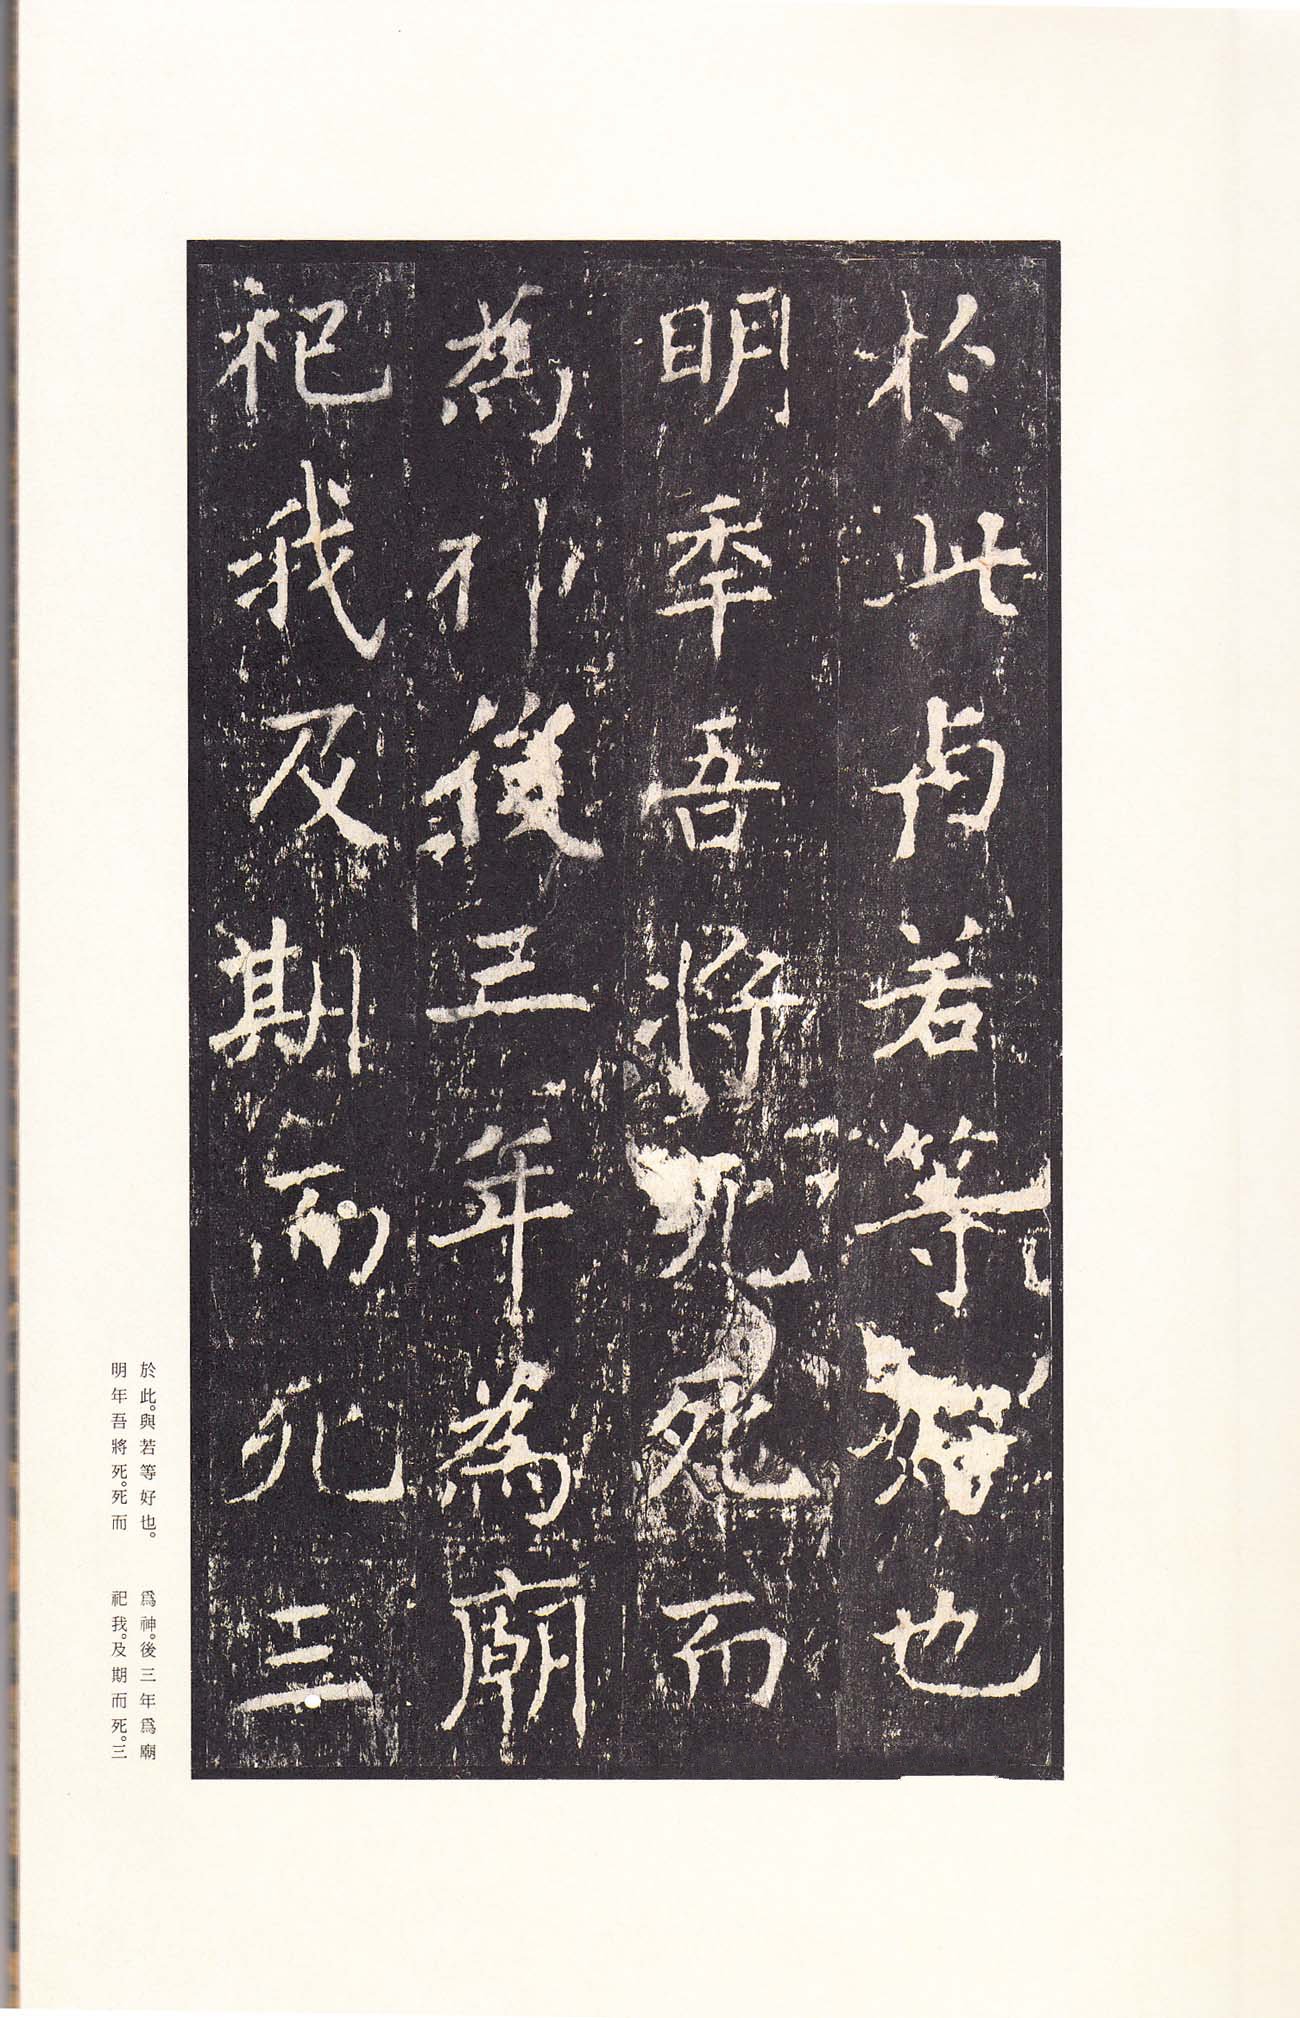 於此与若等好也
明年吾將死死而
為神後三年為廟
祀我及期而死三
於此。與若等好也。
明年吾將死。死而
爲神。後三年爲廟
祀我。及期而死。三